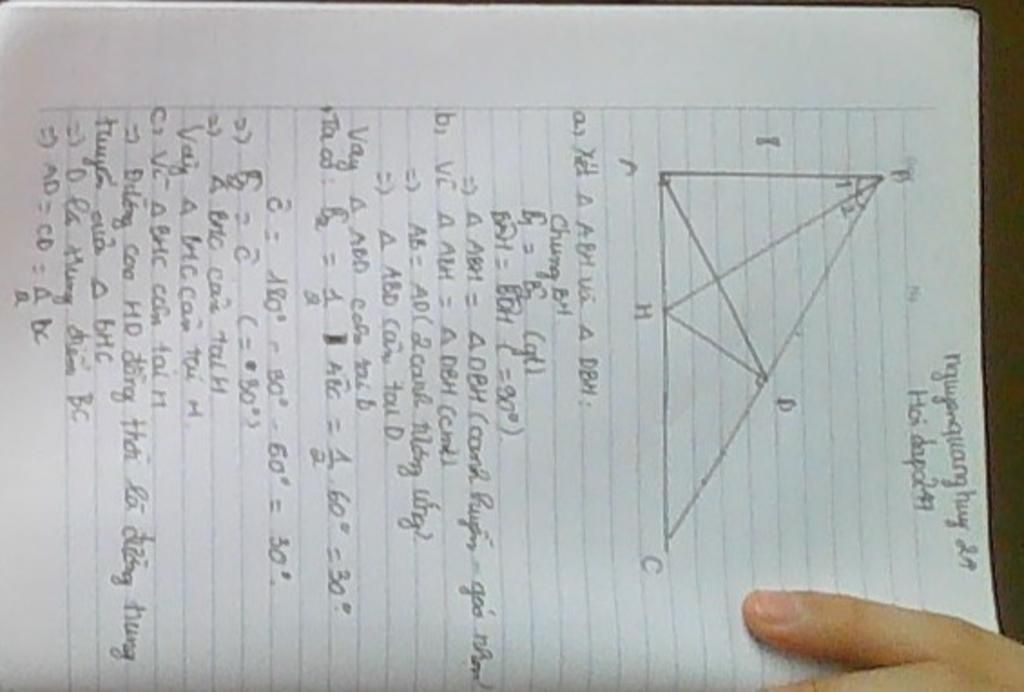 nguyenquanghuy 2A
Hỏi đáp 247
B
1 2
A
H
D
C
a, Xét Δ ABH và Δ DBH :
Chung BH
B̂1 = B̂2 (gt)
BÂH = BD̂H (= 90°)
=> Δ ABH = Δ DBH (cạnh huyền - góc nhọn)
b, Vì Δ ABH = Δ DBH (cmt)
=> AB = AD (2 cạnh tương ứng)
=> Δ ABD cân tại D
Vậy Δ ABD cân tại D
Ta có : B̂2 = 1/2 AB̂C = 1/2 . 60° = 30°
Ĉ = 180° - 90° - 60° = 30°.
=> B̂2 = Ĉ ( = 30°)
=> Δ BHC cân tại H
Vậy Δ BHC cân tại H
c, Vì Δ BHC cân tại H
=> Đường cao HD đồng thời là đường trung
tuyến của Δ BHC
=> D là trung điểm BC
=> AD = CD = 1/2 BC